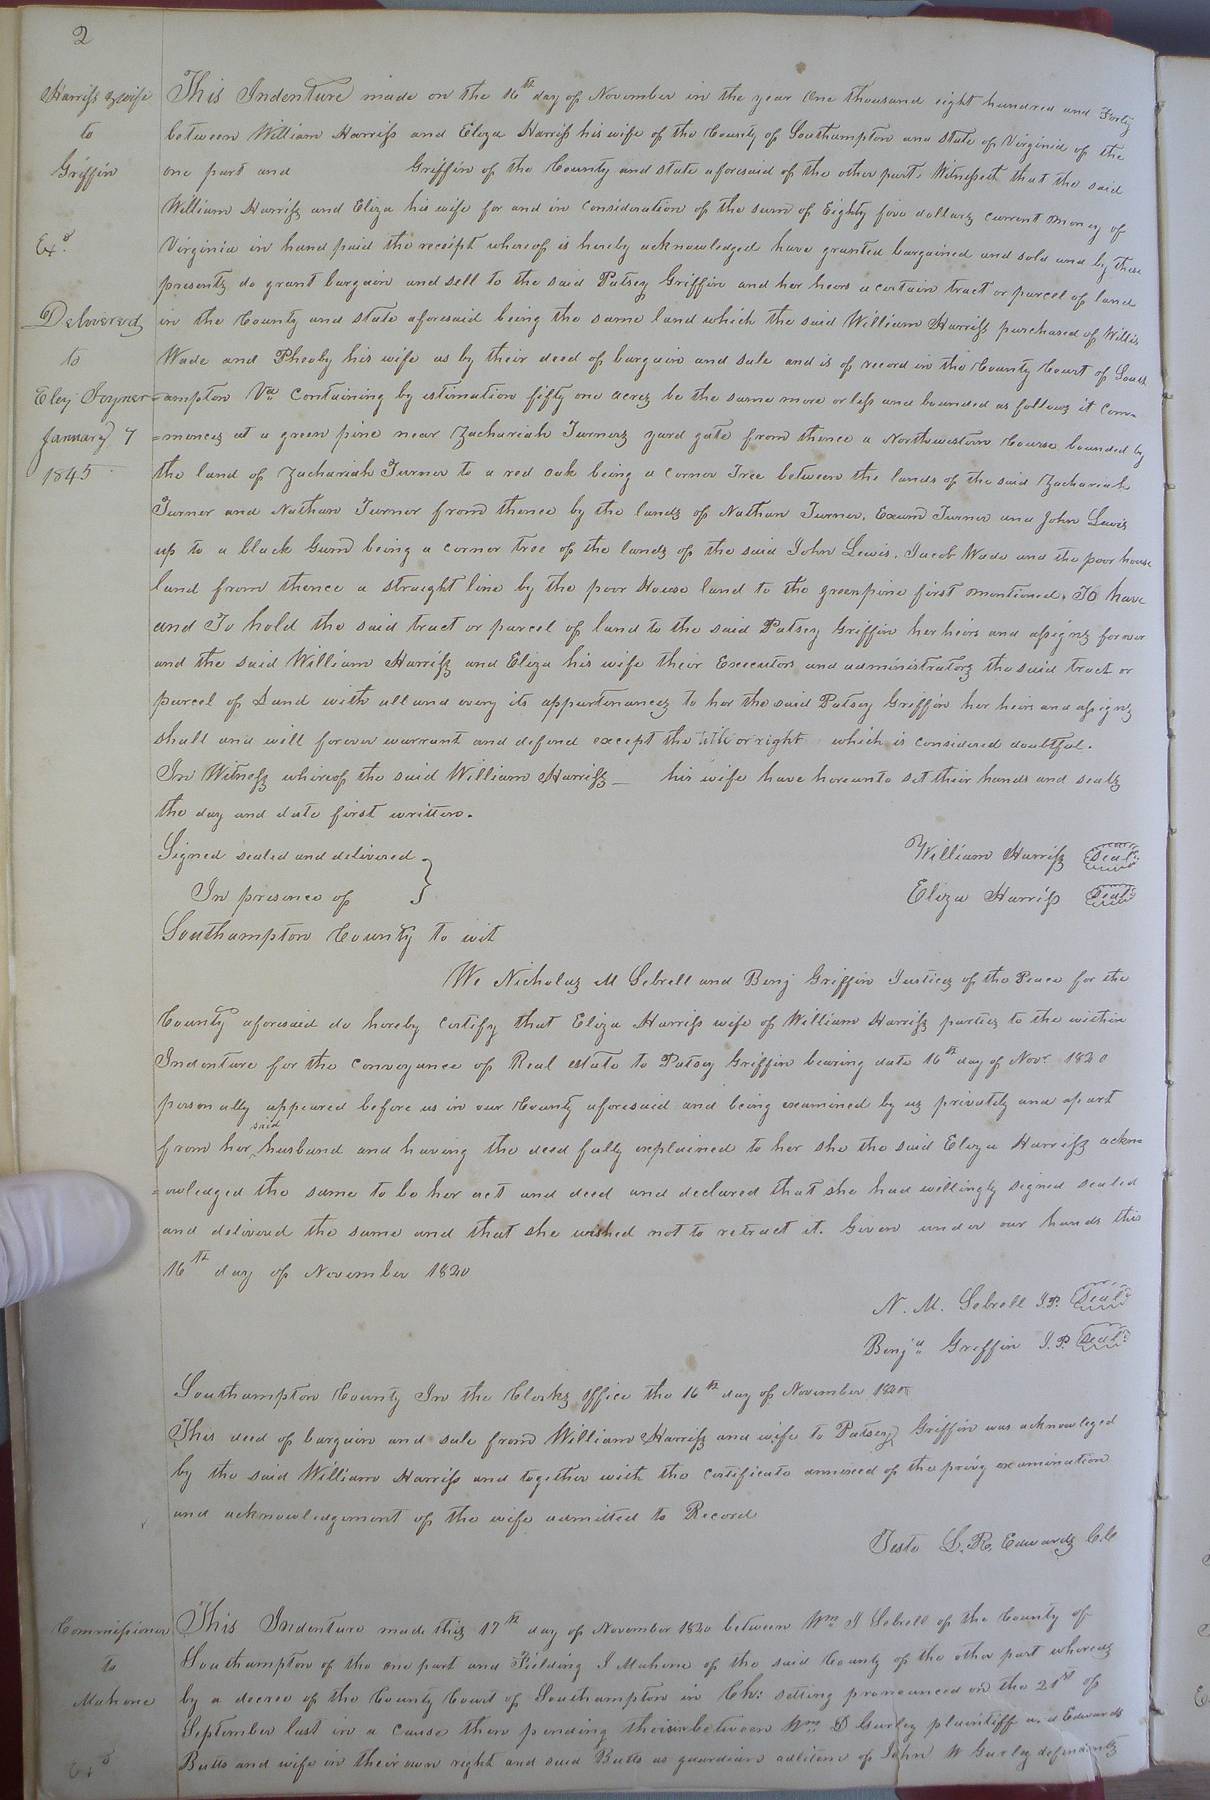 2
Harriss & wife
to
Griffin
Exd.
Delivered
to
Eley Joyner
January 7
1845
This Indenture made on the 16th day of November in the year One thousand eight hundred and Forty
between William Harriss and Eliza Harriss his wife of the County of Southampton and State of Virginia of the
one part and Griffin of the County and state aforesaid of the other part. Witnesseth that the said
William Harriss and Eliza his wife for and in consideration of the sum of Eighty five dollars current money of
Virginia in hand paid the receipt whereof is hereby acknowledged have granted bargained and sold and by these
presents do grant bargain and sell to the said Patsey Griffin and her heirs a certain tract or parcel of land
in the County and state aforesaid being the same land which the said William Harriss purchased of Willis
Wade and Pheoby his wife as by their deed of bargain and sale and is of record in the County Court of South
=ampton Va. Containing by estimation fifty one acres be the same more or less and bounded as follows it com=
=mences at a green pine near Zachariah Turners yard gate from thence a Northwestern Course bounded by
the land of Zachariah Turner to a red oak being a corner Tree between the lands of the said Zachariah
Turner and Nathan Turner from thence by the lands of Nathan Turner, Exum Turner and John Lewis
up to a black Gum being a corner tree of the lands of the said John Lewis, Jacob Wade and the poor house
land from thence a straight line by the poor House land to the green pine first mentioned, To have
and To hold the said tract or parcel of land to the said Patsey Griffin her heirs and assigns forever
and the said William Harriss and Eliza his wife their Executors and administrators the said tract or
parcel of Land with all and every its appurtenances to her the said Patsey Griffin her heirs and assigns
shall and will forever warrant and defend except the title or right which is considered doubtful.
In Witness whereof the said William Harriss _ his wife have hereunto set their hands and seals
the day and date first written.
Signed sealed and delivered }
In presence of
William Harriss Seal
Eliza Harriss Seal
Southampton County to wit
We Nicholas M Sebrell and Benj Griffin Justices of the Peace for the
County aforesaid do hereby certify that Eliza Harriss wife of William Harriss parties to the within
Indenture for the conveyance of Real estate to Patsey Griffin bearing date 16th day of Novr. 1840
personally appeared before us in our County aforesaid and being examined by us privately and apart
from her said husband and having the deed fully explained to her she the said Eliza Harriss ackn=
=owledged the same to be her act and deed and declared that she had willingly signed sealed
and delivered the same and that she wished not to retract it. Given under our hands this
16th day of November 1840
N. M. Sebrell J.P. Seal
Benja Griffin J.P. Seal
Southampton County In the Clerks Office the 16th day of November 1840
This deed of bargain and sale from William Harriss and wife to Patsey Griffin was acknowleged
by the said William Harriss and together with the certificate annexed of the privy examination
and acknowledgement of the wife admitted to Record
Teste L. R. Edwards C.C
Commissioner
to
Mahone
Exd
This Indenture made this 17th day of November 1840 between Wm J Sebrell of the County of
Southampton of the one part and Fielding J Mahone of the said County of the other part whereas
by a decree of the County Court of Southampton in Ch: setting pronounced on the 21st of
September last in a cause then pending therein between Wm D Gurley plaintiff and Edwards
Butts and wife in their own right and said Butts as guardian adlitem of John W Gurley defendants